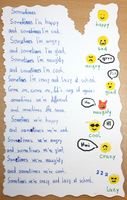 Sometimes
Sometimes I'm happy
and sometimes I'm sad
Sometimes I'm angry,
and sometimes I'm glad.
Sometimes I'm naughty
and sometimes I'm cool.
Sometimes I'm crazy and lazy at school.
Come on, come on, let's sing it again:
sometimes we're different
and sometimes the same.
Sometimes we're happy
and sometimes we're sad.
Sometimes we're angry,
and sometimes we're glad.
Sometimes we're naughty
and sometimes we're cool.
Sometimes we're crazy and lazy at school.
happy
sad
angry
glad
naughty
cool
crazy
zzz
lazy